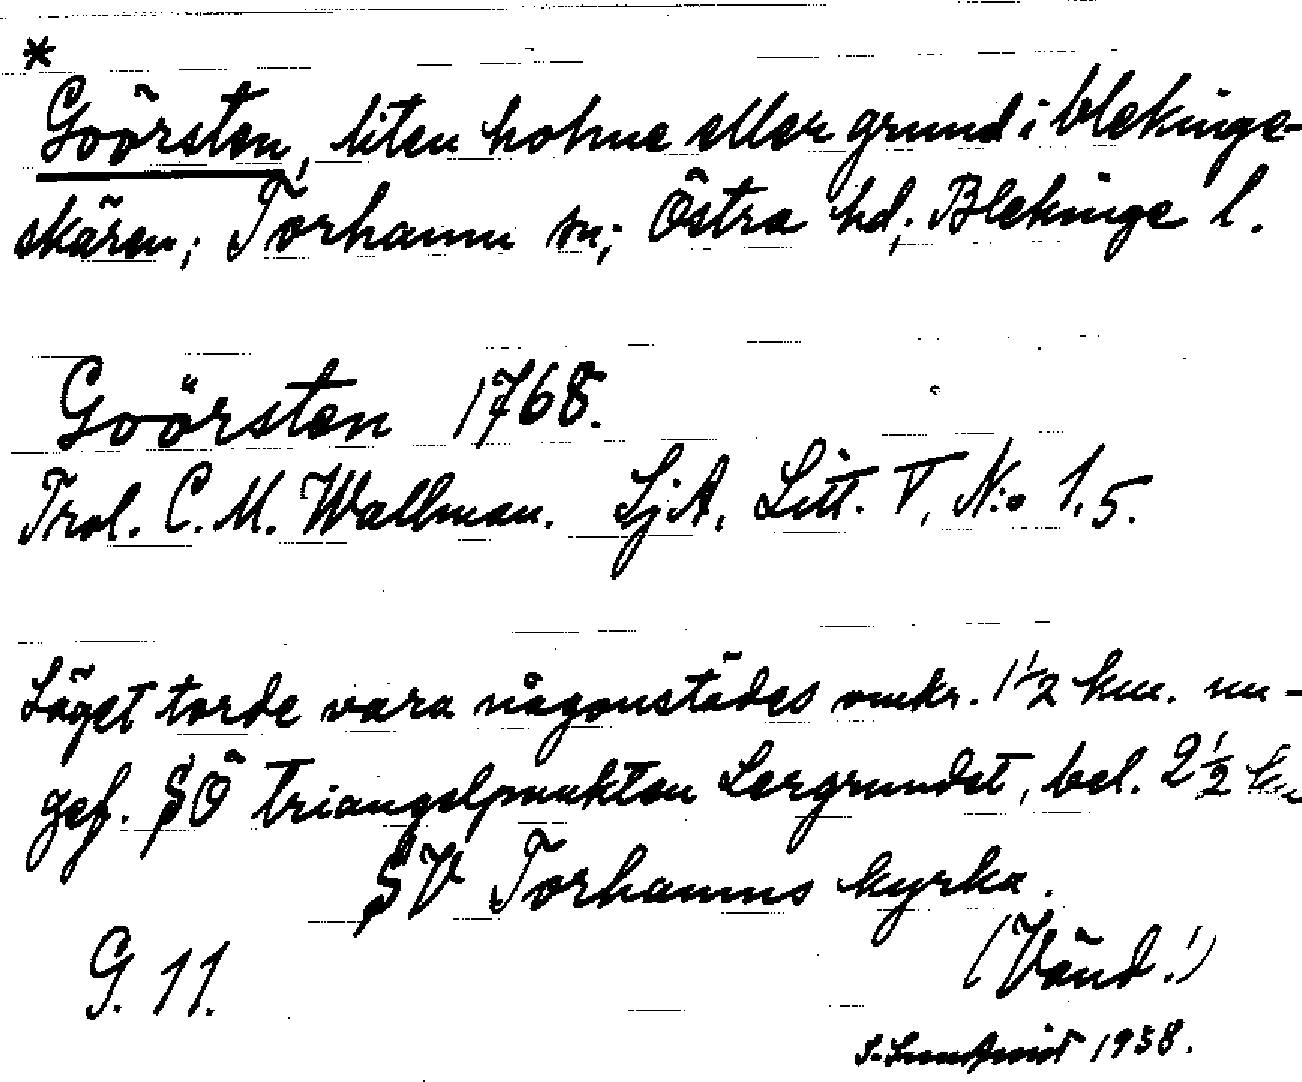 *
Goörsten, liten holme eller grund i blekinge-
skären; Torhamn sn; Östra hd; Blekinge l.
Goörsten 1768.
Trol. C. M. Wallman. SjA, Litt. V, N:o 1.5.
Läget torde vara någonstädes omkr. 1 1/2 km. un-
gef. SÖ triangelpunkten Lergrundet, bel. 2 1/2 km
SV Torhamns kyrka.
(Vänd!)
G. 11.
1938.